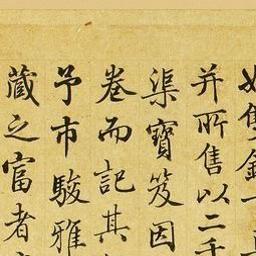 如售金一
并所售以二千
渠寶笈因
卷而記其
予市駿雅
藏之富者